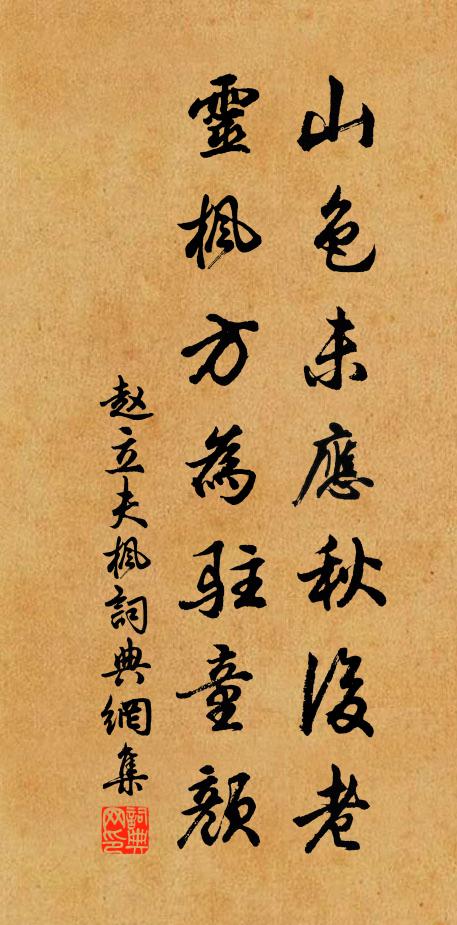 山色未應秋後老
靈楓方為駐童顏
赵立夫楓詞典網集
詞典網印